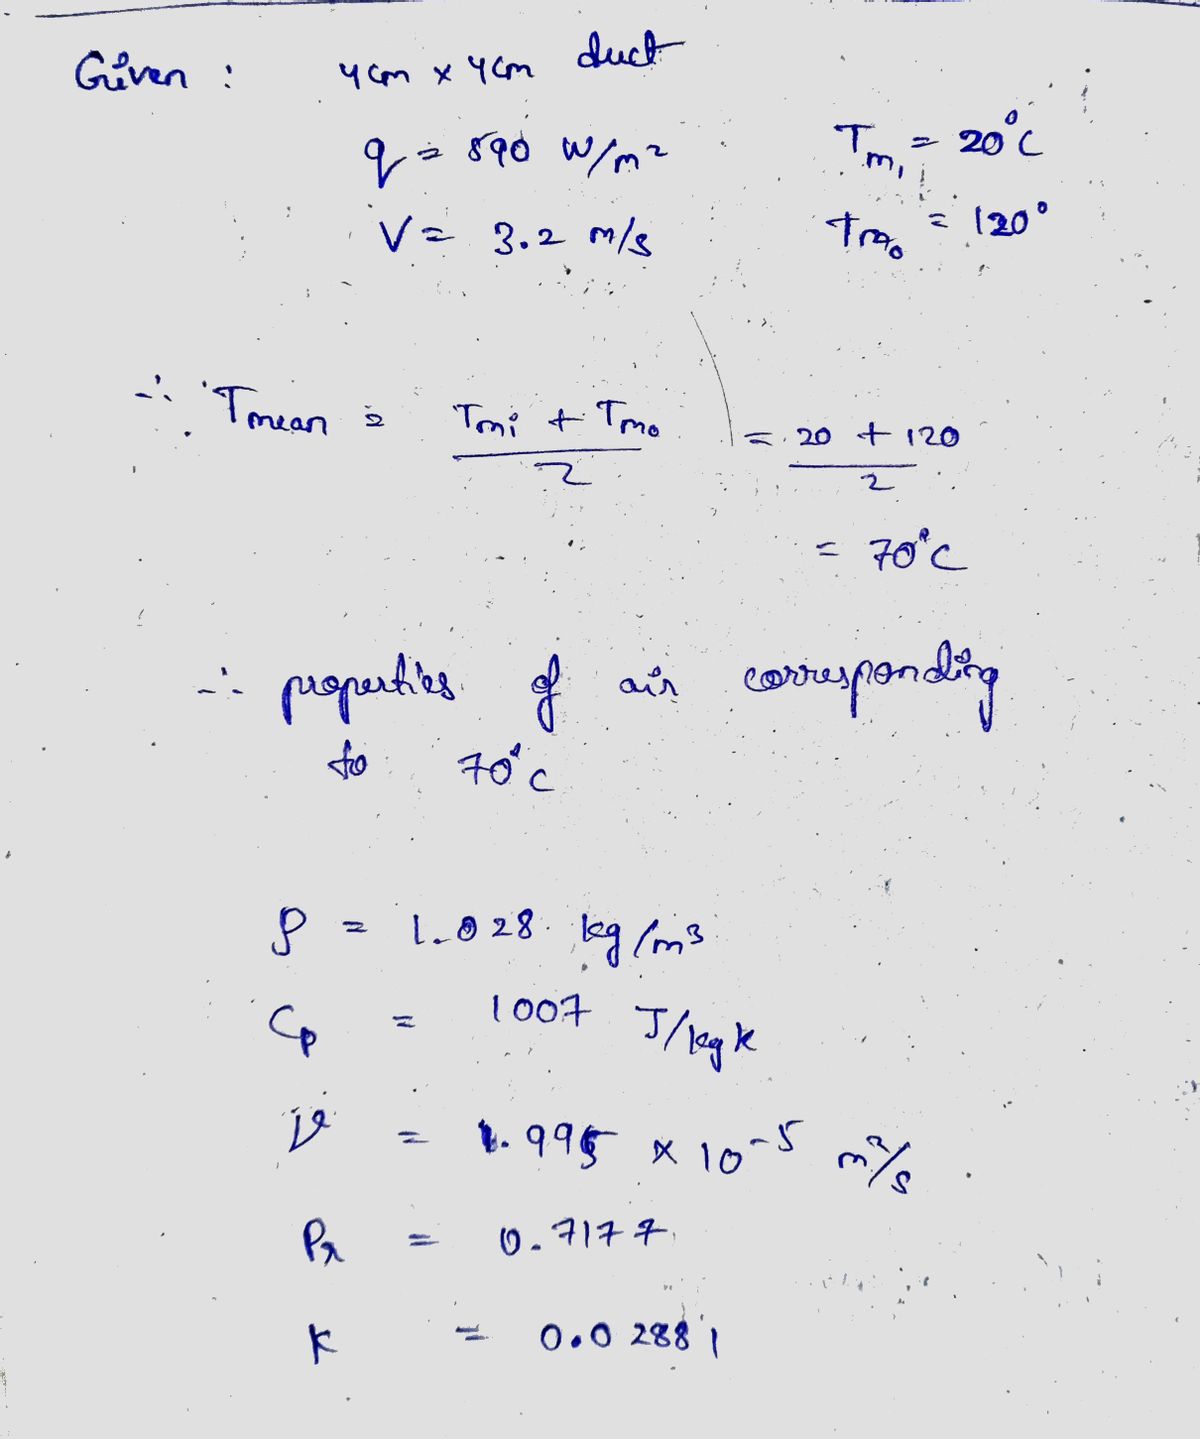 Given : 4cm x 4cm duct
q = 890 W/m²
V = 3.2 m/s
Tmi = 20°C
Tmo = 120°
∴ Tmean = Tmi + Tmo / 2 = 20 + 120 / 2
= 70°C
∴ properties of air corresponding
to 70°C
ρ = 1.028 kg/m³
Cp = 1007 J/kgk
ν = 1.995 x 10⁻⁵ m²/s
Pr = 0.7177
K = 0.02881